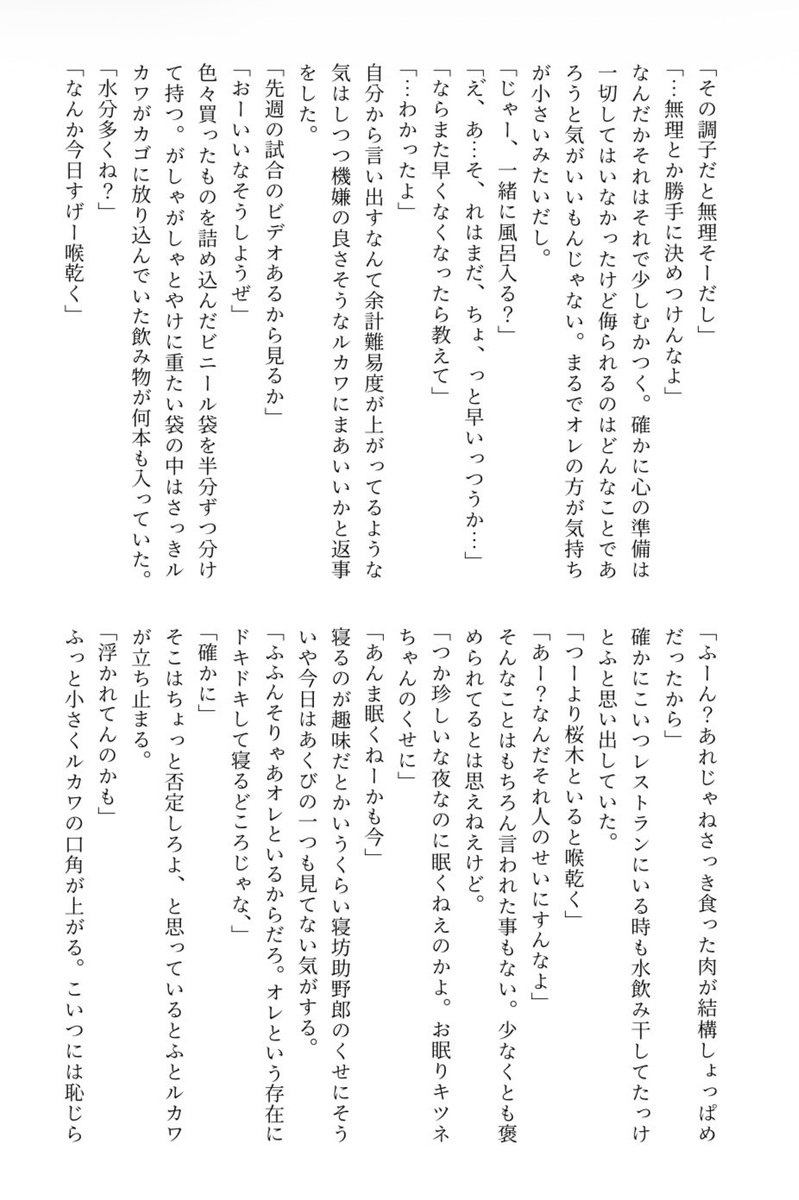 「その調子だと無理そーだし」
「…無理とか勝手に決めつけんなよ」
なんだかそれはそれで少しむかつく。確かに心の準備は
一切してはいなかったけど侮られるのはどんなことであ
ろうと気がいいもんじゃない。まるでオレの方が気持ち
が小さいみたいだし。
「じゃー、一緒に風呂入る?」
「え゛、あ…そ、れはまだ、ちょ、っと早いっつうか…」
「ならまた早くなくなったら教えて」
「…わかったよ」
自分から言い出すなんて余計難易度が上がってるような
気はしつつ機嫌の良さそうなルカワにまあいいかと返事
をした。
「先週の試合のビデオあるから見るか」
「おーいいなそうしようぜ」
色々買ったものを詰め込んだビニール袋を半分ずつ分け
て持つ。がしゃがしゃとやけに重たい袋の中はさっきル
カワがカゴに放り込んでいた飲み物が何本も入っていた。
「水分多くね?」
「なんか今日すげー喉乾く」
「ふーん?あれじゃねさっき食った肉が結構しょっぱめ
だったから」
確かにこいつレストランにいる時も水飲み干してたっけ
とふと思い出していた。
「つーより桜木といると喉乾く」
「あー?なんだそれ人のせいにすんなよ」
そんなことはもちろん言われた事もない。少なくとも褒
められてるとは思えねえけど。
「つか珍しいな夜なのに眠くねえのかよ。お眠りキツネ
ちゃんのくせに」
「あんま眠くねーかも今」
寝るのが趣味だとかいうくらい寝坊助野郎のくせにそう
いや今日はあくびの一つも見てない気がする。
「ふふんそりゃあオレといるからだろ。オレという存在に
ドキドキして寝るどころじゃな、」
「確かに」
そこはちょっと否定しろよ、と思っているとふとルカワ
が立ち止まる。
「浮かれてんのかも」
ふっと小さくルカワの口角が上がる。こいつには恥じら